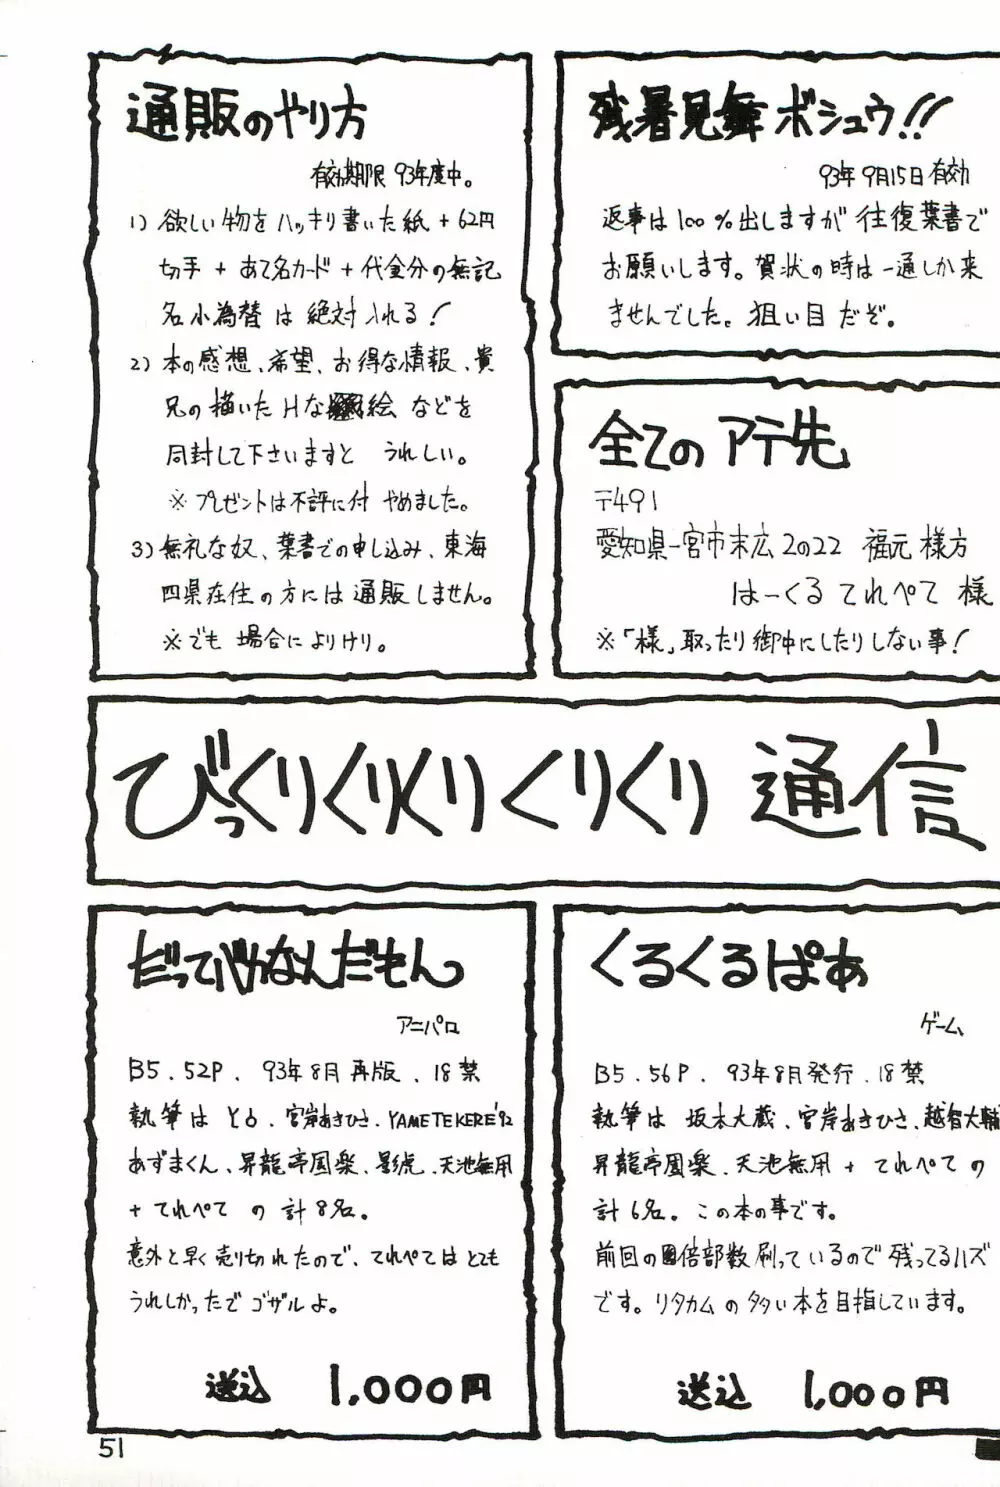 通販のやり方
有効期限 93年度中。
1) 欲しい物をハッキリ書いた紙 + 62円
切手 + あて名カード + 代金分の無記
名小為替は絶対入れる!
2) 本の感想、希望、お得な情報、貴
兄の描いたHな絵などを
同封して下さいますと うれしい。
※プレゼントは不評に付 やめました。
3) 無礼な奴、葉書での申し込み、東海
四県在住の方には通販しません。
※でも 場合によりけり。
残暑見舞ボシュウ!!
93年9月15日有効
返事は100%出しますが往復葉書で
お願いします。賀状の時は一通しか来
ませんでした。狙い目だぞ。
全てのアテ先
〒491
愛知県一宮市末広2の22 福元様方
はーくるてれぺて 様
※「様」取ったり御中にしたりしない事!
びっくりくりくりくりくり通信
だってバカなんだもんっ
アニパロ
B5.52P. 93年8月再版.18禁
執筆は とろ、宮岸あきひさ、YAMETEKERE'92
あずまくん、昇龍亭圓楽、影虎、天池無用
+ てれぺて の計8名。
意外と早く売り切れたので、てれぺてはとても
うれしかったでゴザルよ。
送込 1,000円
くるくるぱあ
ゲーム
B5.56P. 93年8月発行.18禁
執筆は 坂本大蔵、宮岸あきひさ、越智大輔
昇龍亭圓楽、天池無用 + てれぺての
計6名。この本の事です。
前回の倍部数刷っているので残ってるハズ
です。リタカムの多い本を目指しています。
送込 1,000円
51